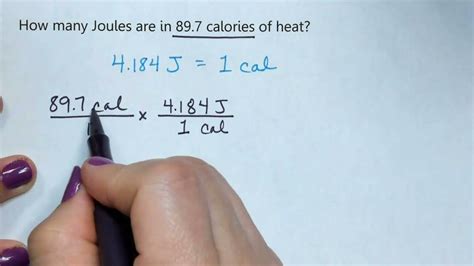 How many Joules are in 89.7 calories of heat?
4.184 J = 1 cal
89.7 cal × 4.184 J
1 1 cal